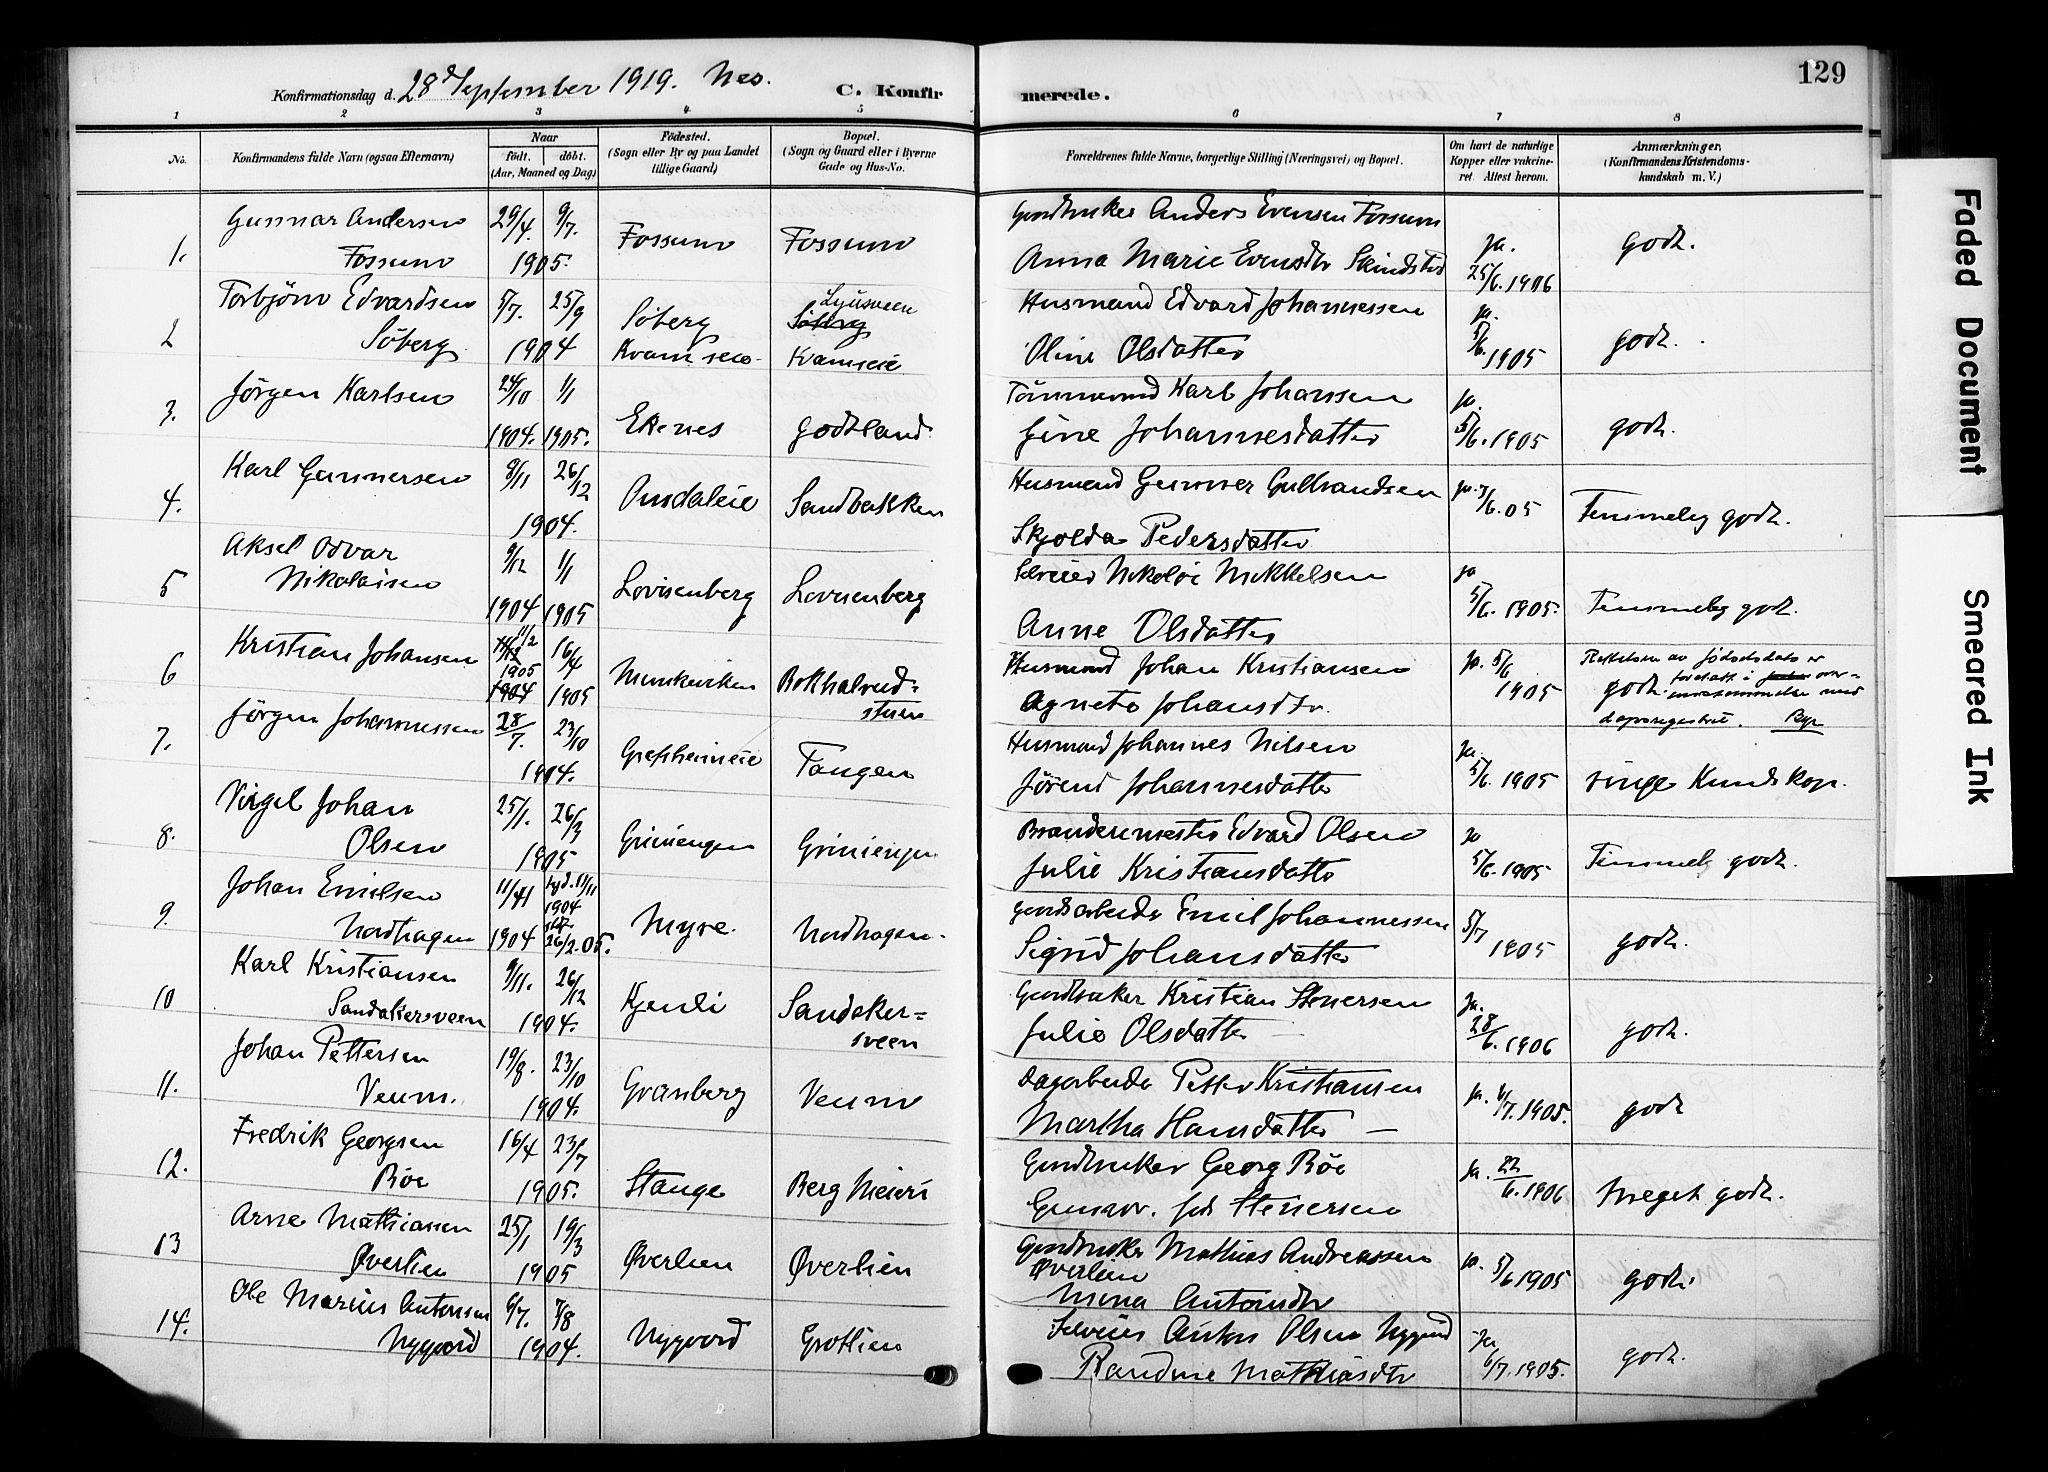 Konfirmationsdag d. 28d September 1919. Nes. C. Konfirmerede. 129
1 2 3 4 5 6 7 8
No. Konfirmandens fulde Navn (ogsaa Efternavn) Naar født. døbt. (Aar, Maaned og Dag) Fødested. (Sogn eller By og paa Landet tillige Gaard) Bopæl. (Sogn og Gaard eller i Byerne Gade og Hus-No. Forældrenes fulde Navne, borgerlige Stilling (Næringsvei) og Bopæl. Om havt de naturlige Kopper eller vakcineret. Attest herom. Anmærkninger. (Konfirmandens Kristendomskundskab m. V.)
1. Gunnar Andersen Fossum 29/4. 9/7. 1905. Fossum Fossum Gaardbruker Anders Evensen Fossum
Anna Marie Evensdtr Ja. 25/6.1906 godt.
2 Torbjørn Edvardsen Søberg 5/7. 25/9 1904 Søberg Kvamseie Søberg Kvamseie Husmand Edvard Johannessen
Oline Olsdatter ja. 5/6.1905 godt.
3. Jørgen Karlsen 24/10 1904. 1/1 1905. Ekenes Godtland Tømmermand Karl Johansen
Gine Johannesdatter ja. 5/6.1905 godt.
4. Karl Gunnersen 9/11 26/12 1904. Sandbakken Husmand Gunner Gulbrandsen
Skjolda Pedersdatter ja. 5/6.05 Temmelig godt.
5 Aksel Odvar Nikolaisen 9/12 1904 1/1 1905 Lovisenberg Lovisenberg Selveier Nikolai Mikkelsen
Anne Olsdatter ja 5/6.1905. Temmelig godt.
6 Kristian Johansen 11/2 1905 1904 16/4 1905 Husmand Johan Kristiansen
Agnete Johansdtr. Ja. 5/6 1905 godt. Rettelsen av fødselsdato er foretatt i overensstemmelse med daapsregistret.
7. Jørgen Johannessen 28/7. 23/10 1904. Tangen Husmand Johannes Nilsen
Jørend Johannesdatter Ja. 5/6.1905 ringe Kundskap.
8. Virgel Johan Olsen 25/1. 26/3 1905 Griniengen Griniengen Edvard Olsen
Julie Kristiansdatter Ja 5/6.1905 Temmelig godt.
9. Johan Emilsen Nordhagen 11/11 1904 hjd. 11/11 1904 26/2.05. Myre. Nordhagen. Gaardsarbeider Emil Johannessen
Sigrid Johansdatter 5/7 1905 godt.
10 Karl Kristiansen Sandakersveen 9/11. 26/12 1904. Kjenli Sandakersveen Gaardbruker Kristian Stenersen
Julie Olsdatter Ja. 28/6.1906 godt.
11. Johan Pettersen Veum. 19/8. 23/10 1904. Granberg Veum Dagarbeider Petter Kristiansen
Martha Hansdatter — Ja. 4/7.1905. godt
12. Fredrik Georgsen Røe 16/4 23/7 1905. Stange Berg Meieri Gaardbruker Georg Røe
Gunvor. født Stenersen Ja. 22/6.1906 Meget godt.
13 Arne Mathiassen Øverlien 25/1 19/3 1905 Øverlien Øverlien Gaardbruker Mathias Andreassen Øverlien
Mina Antonsdtr ja. 5/6 1905 godt.
14. Ole Marius Antonsen Nygaard 6/7. 7/8 1904. Nygaard Grøtlien Selveier Anton Olsen Nygaard
Randine Mathiasdtr Ja 6/7.1905. godt.
Faded Document
Smeared Ink